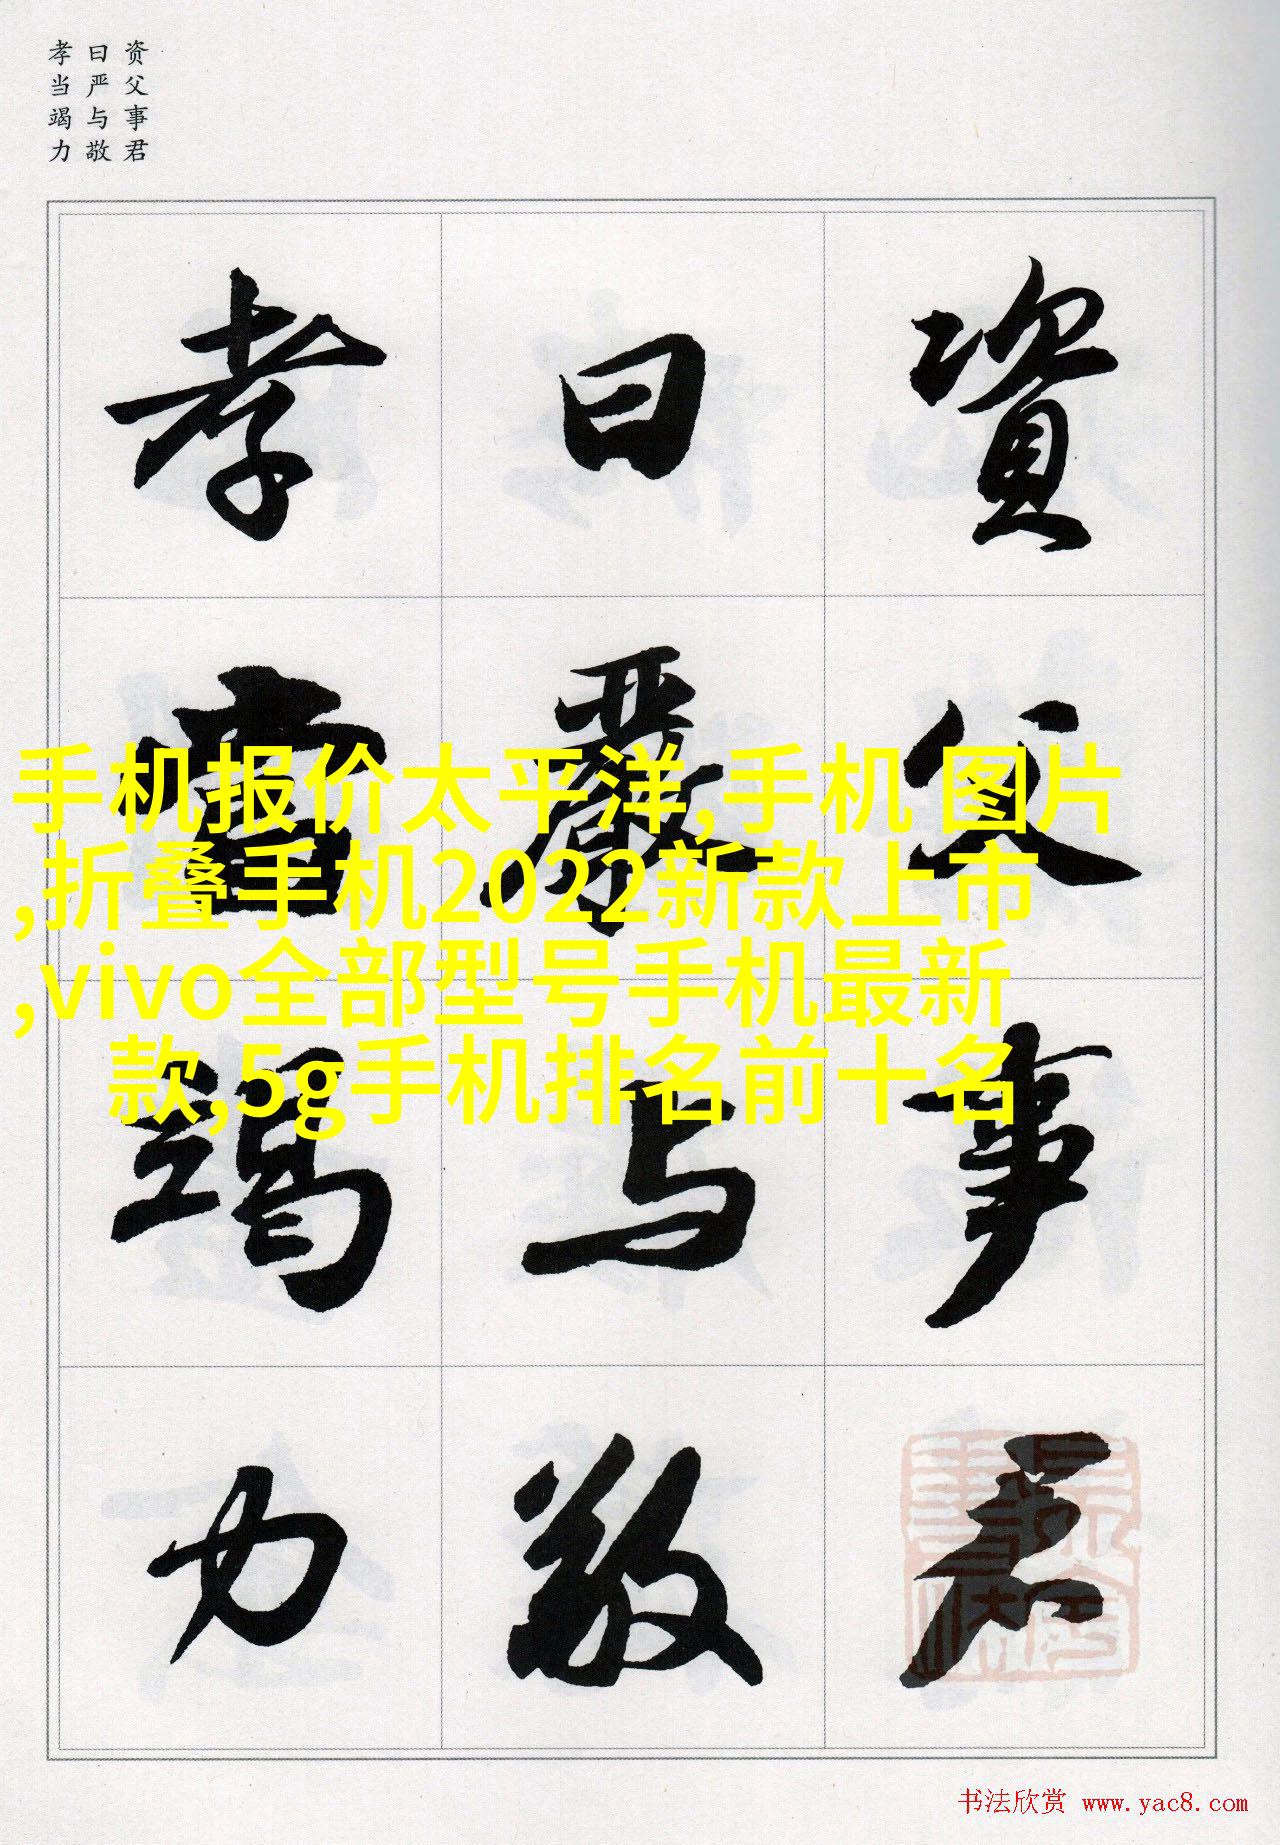 资父事君
曰严与敬
孝当竭力
資父事君
曰嚴与敬
孝當竭力
手机报价太平洋,手机 图片
,折叠手机2022新款上市
,vivo全部型号手机最新
款,5g手机排名前十名
书法欣赏 www.yac8.com